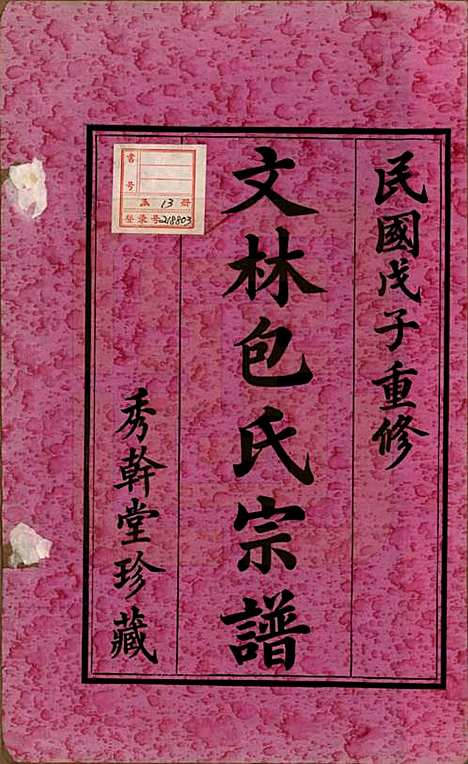 民國戊子重修
文林包氏宗譜
秀幹堂珍藏
書號
函 13 册
登录号 218803